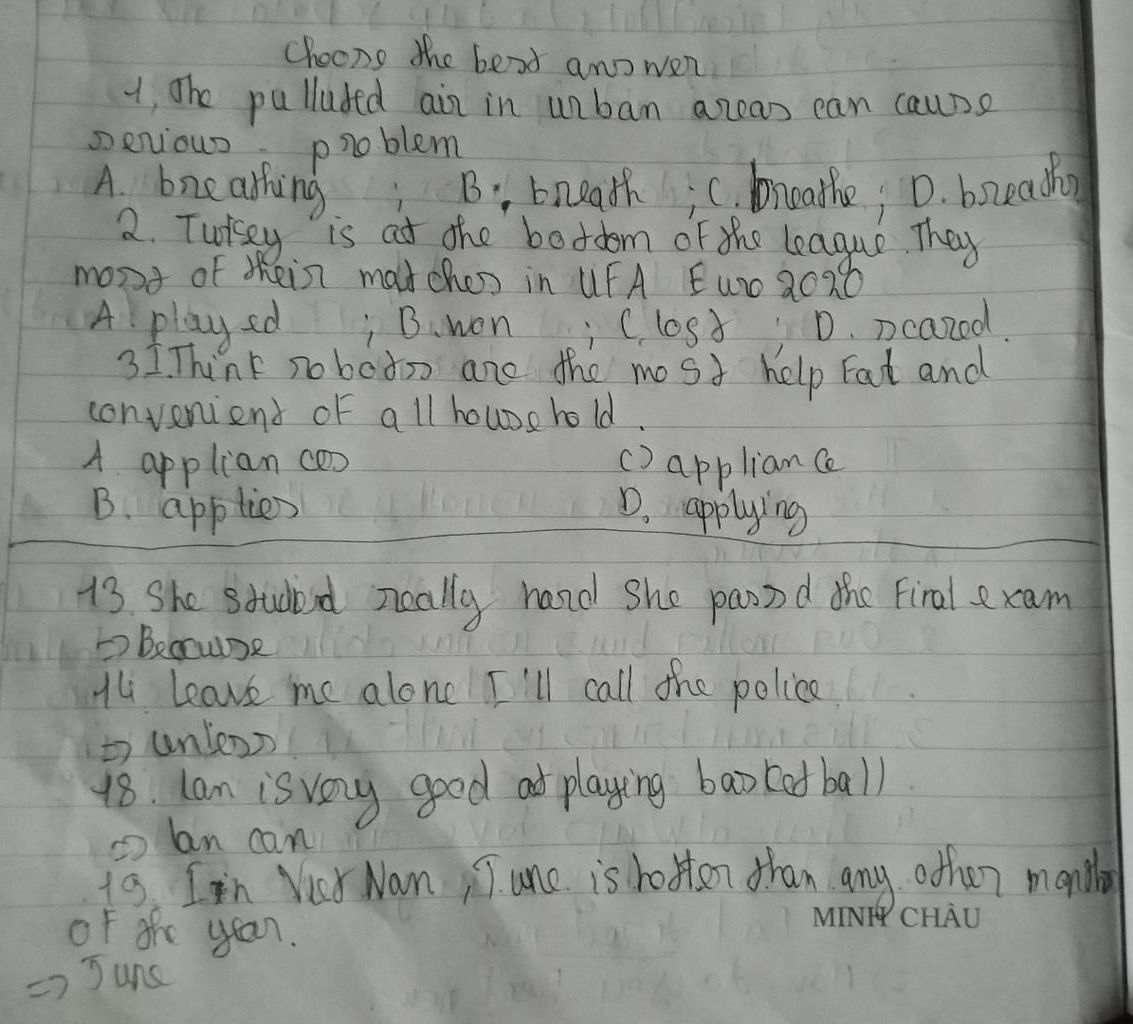 Choose the best answer
1, The pulluted air in urban areas can cause
serious problem
A. breathing ; B. breath ; C. breathe ; D. breaths
2. Turkey is at the bottom of the league. They
most of their matches in UFA Euro 2020
A. played ; B. won ; C. lost ; D. scared.
3 I Think robots are the most helpfat and
convenient of all household.
A appliances C) appliance
B. applies D. applying
13 She studied really hard She passd the Final exam
=> Because
14 Leave me alone I'll call the police
=> unless
18. lan is very good at playing basketball
=> lan can
19. Iin Viet Nan, June is hotter than any other months
MINH CHÂU
of the year.
=> June